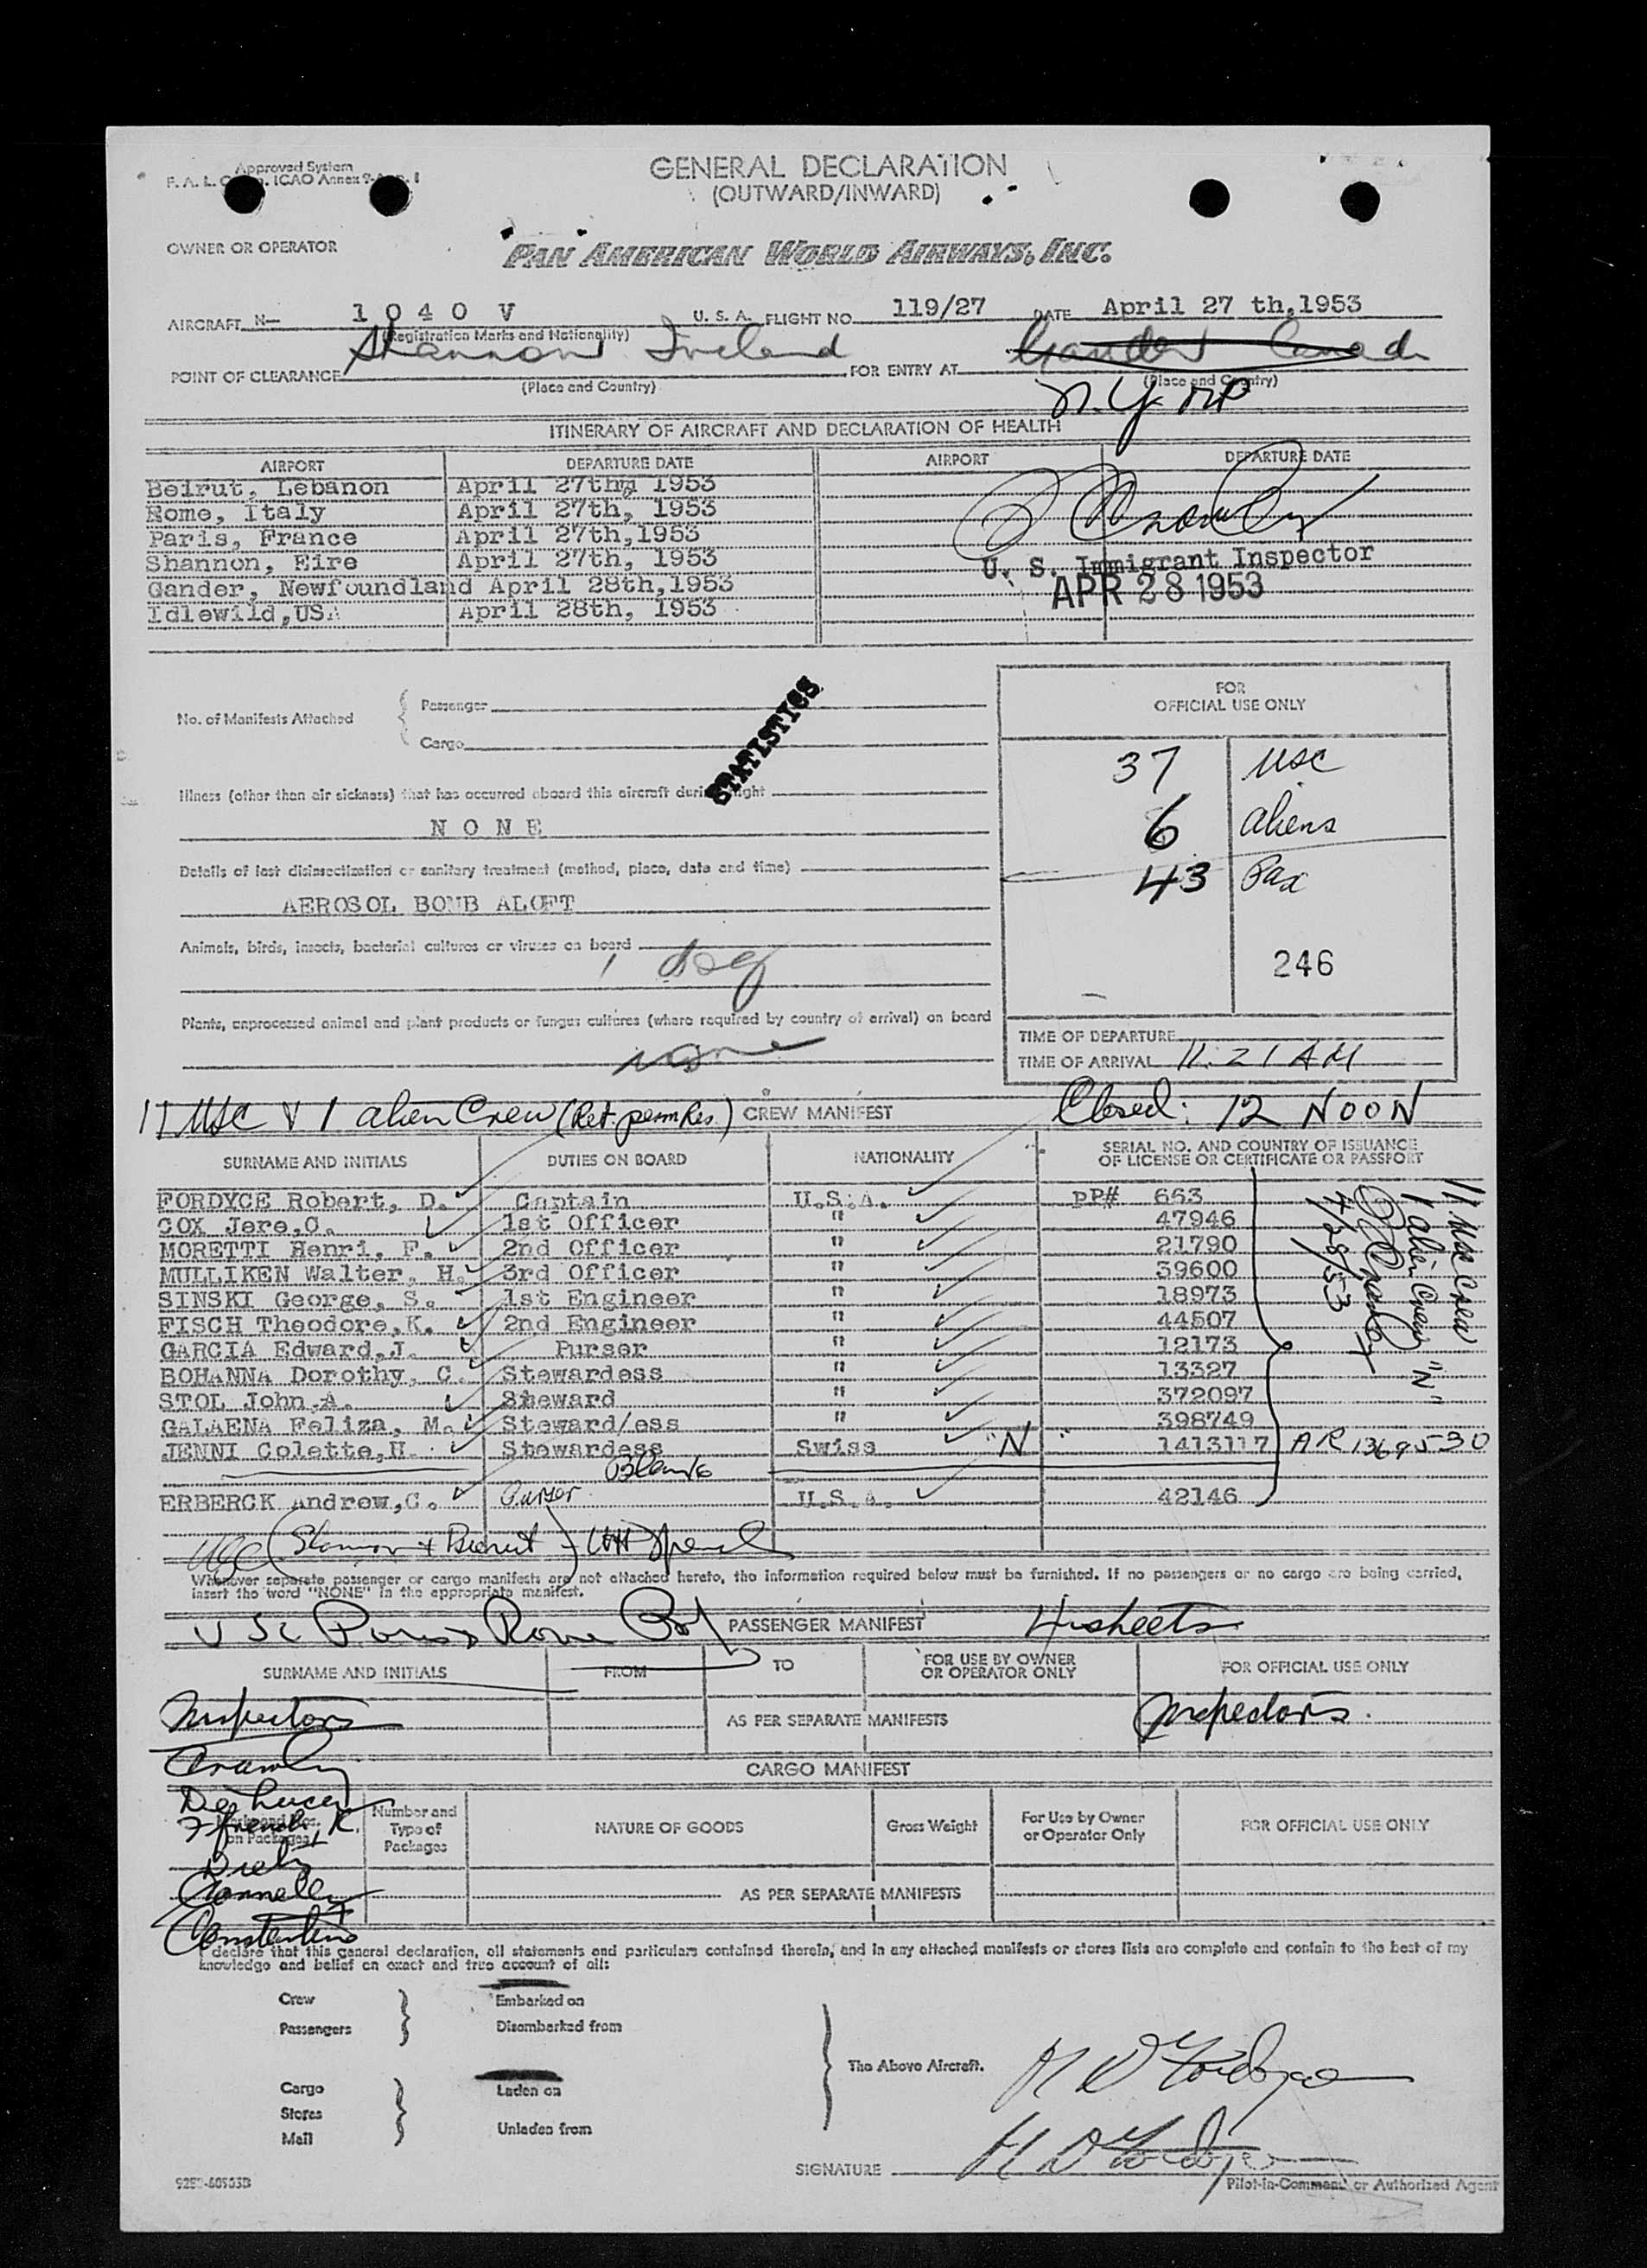 Approved System
ICAO Annex 9
GENERAL DECLARATION
(OUTWARD/INWARD)
OWNER OR OPERATOR
PAN AMERICAN WORLD AIRWAYS, INC.
AIRCRAFT N— 1 0 4 0 V U. S. A. FLIGHT NO. 119/27 DATE April 27 th,1953
(Registration Marks and Nationality)
POINT OF CLEARANCE Shannon Ireland FOR ENTRY AT Gander Canada
(Place and Country) (Place and Country)
N.Y.
ITINERARY OF AIRCRAFT AND DECLARATION OF HEALTH
AIRPORT DEPARTURE DATE AIRPORT DEPARTURE DATE
Beirut, Lebanon April 27th, 1953
Rome, Italy April 27th, 1953
Paris, France April 27th,1953
Shannon, Eire April 27th, 1953
U. S. Immigrant Inspector
Gander, Newfoundland April 28th,1953
APR 28 1953
Idlewild,USA April 28th, 1953
FOR
OFFICIAL USE ONLY
No. of Manifests Attached
Passenger
Cargo
STATISTICS
37 USC
Illness (other than air sickness) that has occurred aboard this aircraft during flight
6 aliens
N O N E
Details of last disinsectization or sanitary treatment (method, place, date and time)
43 Pax
AEROSOL BOMB ALOFT
Animals, birds, insects, bacterial cultures or viruses on board
1 dog
246
Plants, unprocessed animal and plant products or fungus cultures (where required by country of arrival) on board
none
TIME OF DEPARTURE
TIME OF ARRIVAL 11:21 AM
11 USC & 1 alien Crew (Ret. perm Res.) CREW MANIFEST Closed: 12 NOON
SURNAME AND INITIALS DUTIES ON BOARD NATIONALITY SERIAL NO. AND COUNTRY OF ISSUANCE
OF LICENSE OR CERTIFICATE OR PASSPORT
FORDYCE Robert, D. Captain U.S.A. PP# 663
COX Jere,C. 1st Officer " 47946
MORETTI Henri, F. 2nd Officer " 21790
MULLIKEN Walter, H. 3rd Officer " 39600
SINSKI George, S. 1st Engineer " 18973
FISCH Theodore,K. 2nd Engineer " 44507
GARCIA Edward,J. Purser " 12173
BOHANNA Dorothy, C. Stewardess " 13327
STOL John,A. Steward " 372097
GALAENA Feliza, M. Steward/ess " 398749
JENNI Colette,H. Stewardess Swiss "N" 1413117 AR 1369530
11 USC Crew
1 alien Crew "N"
4/28/53
ERBERCK Andrew,C. Purser U.S.A. 42146
Whenever separate passenger or cargo manifests are not attached hereto, the information required below must be furnished. If no passengers or no cargo are being carried,
insert the word "NONE" in the appropriate manifest.
PASSENGER MANIFEST 4 sheets
SURNAME AND INITIALS FROM TO FOR USE BY OWNER
OR OPERATOR ONLY FOR OFFICIAL USE ONLY
Inspectors AS PER SEPARATE MANIFESTS Inspectors.
Crawley
CARGO MANIFEST
on Packages Number and
Type of
Packages NATURE OF GOODS Gross Weight For Use by Owner
or Operator Only FOR OFFICIAL USE ONLY
AS PER SEPARATE MANIFESTS
I declare that this general declaration, all statements and particulars contained therein, and in any attached manifests or stores lists are complete and contain to the best of my
knowledge and belief an exact and true account of all:
Crew Embarked on
Passengers Disembarked from
The Above Aircraft.
Cargo Laden on
Stores
Mail Unladen from
SIGNATURE
Pilot-in-Command or Authorized Agent